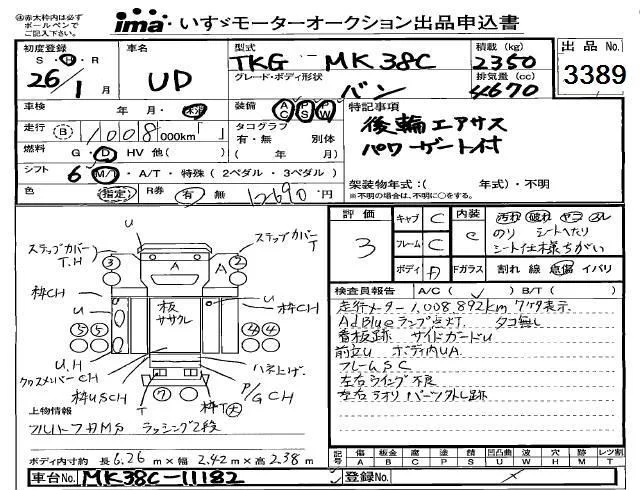 ④赤太枠内は必ず
ボールペンで
ご記入ください。
ima いすゞモーターオークション出品申込書
初度登録 車名 型式 積載 (kg) 出品 No.
S・H・R UD TKG-MK38C 2350
26年1月 グレード・ボディ形状 排気量 (cc) 3389
バン 4670
車検 年 月・無 装備 AC PS PW 特記事項
走行 (B) 1008 000km「 」 タコグラフ 後輪エアサス
有・無 別体 パワーゲート付
燃料 G・D HV 他( ) ( 年 月)
シフト 6 M/T・A/T・特殊(2ペダル・3ペダル)
架装物年式:( 年式)・不明
色 (指定) R券 有 無 12690円 ※不明の場合は、不明に○をする。
評価 3 キャブ C 内装 e 汚れ 破れ ヤコ スレ
フレーム C のり シートへたり
シート仕様ちがい
ボディ A Fガラス 割れ 線 点傷 イバリ
検査員報告 A/C(✓) B/T( )
走行メーター1,008,892km 7ケタ表示
AdBlueランプ点灯. タコ無し
看板跡 サイドガードU
前立U ボディ内UA
フレームSC
左右ウイング不良
左右ラオリ バーツ外し跡
U
ステップカバー
T.H
ステップカバー
T
③ A A ②
枠CH U 板 ササクレ U 枠CH
⑤⑤ ④④
U.H
クロスメンバーCH
枠USCH
ハネ上げ.
P/G CH
T ⑦ 枠T
上物情報
フルハーフAMS ラッシング2段
ボディ内寸約 長6.26m×幅2.42m×高2.38m
記号 傷 板金 腐 塗 錆 凹凸曲 波 穴 跡 レツ割
A B C P S U W H M T
車台No. MK38C-11182 登録No.